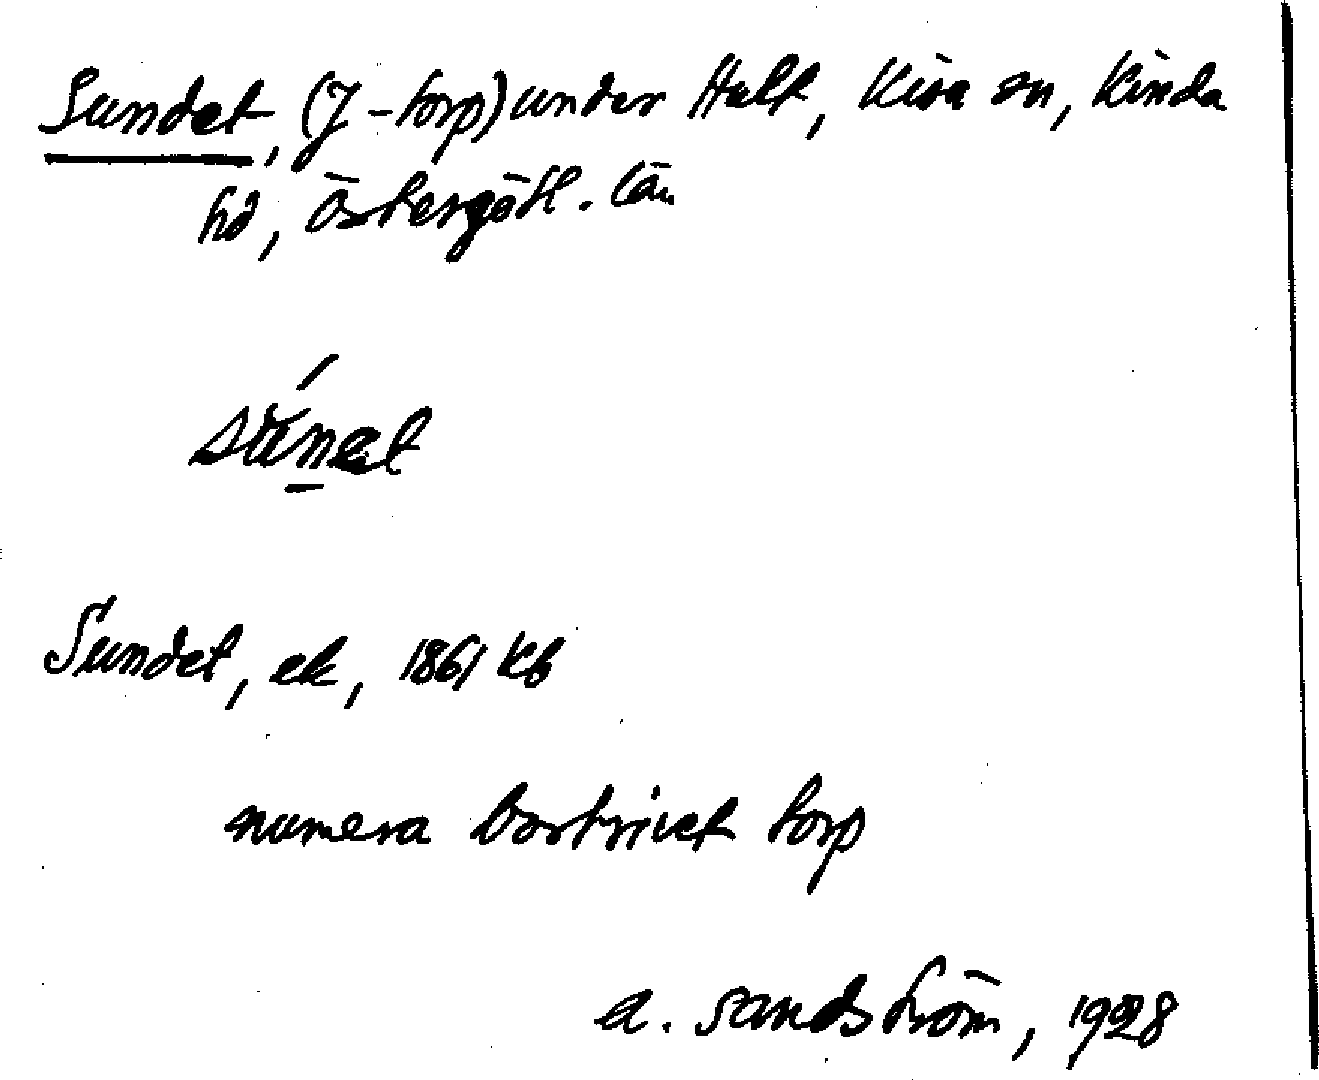 Sundet, (J-torp) under Hult, Kisa sn, Kinda
hd, Östergötl. län
Sundet, ek, 1861 Kb
numera bortrivet torp
A. Sandström, 1928